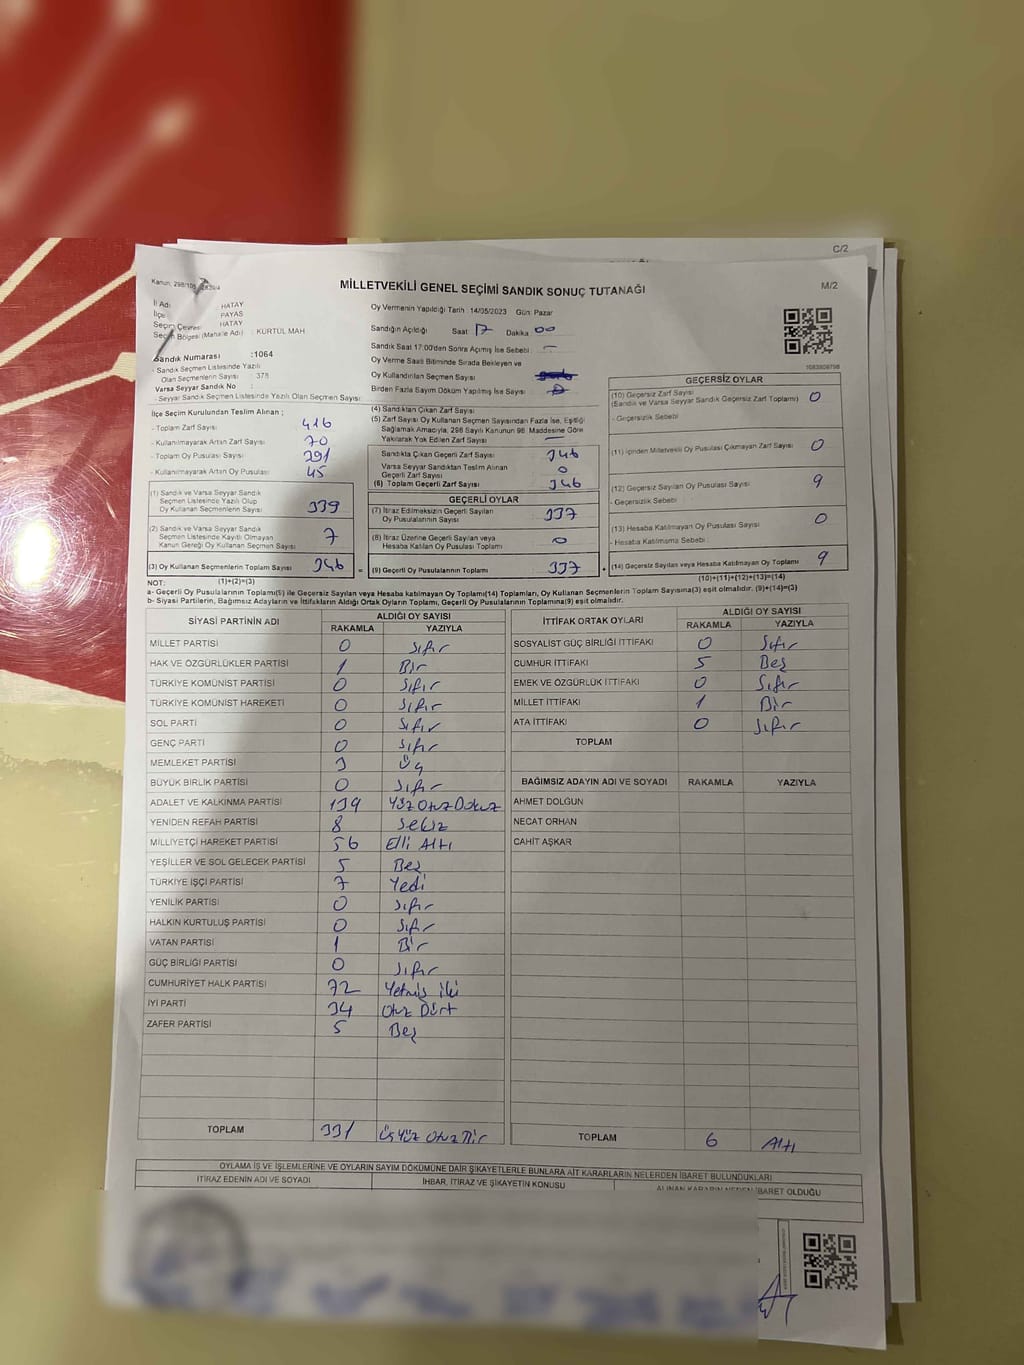 C/2
Kanun; 298/105
M/2
MİLLETVEKİLİ GENEL SEÇİMİ SANDIK SONUÇ TUTANAĞI
İl Adı : HATAY
İlçe : PAYAS
Seçim Çevresi : HATAY
Seçim Bölgesi (Mahalle Adı) : KÜRTÜL MAH
Sandık Numarası :1064
- Sandık Seçmen Listesinde Yazılı
Olan Seçmenlerin Sayısı : 378
Varsa Seyyar Sandık No :
- Seyyar Sandık Seçmen Listesinde Yazılı Olan Seçmen Sayısı:
Oy Vermenin Yapıldığı Tarih :14/05/2023 Gün: Pazar
Sandığın Açıldığı Saat 17 Dakika 00
Sandık Saat 17:00'den Sonra Açmış İse Sebebi : —
Oy Verme Saati Bitiminde Sırada Bekleyen ve
Oy Kullandırılan Seçmen Sayısı
Birden Fazla Sayım Döküm Yapılmış İse Sayısı :
1083808798
İlçe Seçim Kurulundan Teslim Alınan ;
- Toplam Zarf Sayısı : 416
- Kullanılmayarak Artan Zarf Sayısı : 70
- Toplam Oy Pusulası Sayısı : 391
- Kullanılmayarak Artan Oy Pusulası : 45
(1) Sandık ve Varsa Seyyar Sandık
Seçmen Listesinde Yazılı Olup
Oy Kullanan Seçmenlerin Sayısı 339
(2) Sandık ve Varsa Seyyar Sandık
Seçmen Listesinde Kayıtlı Olmayan
Kanun Gereği Oy Kullanan Seçmen Sayısı 7
(3) Oy Kullanan Seçmenlerin Toplam Sayısı 346
(4) Sandıktan Çıkan Zarf Sayısı
(5) Zarf Sayısı Oy Kullanan Seçmen Sayısından Fazla İse, Eşitliği
Sağlamak Amacıyla; 298 Sayılı Kanunun 98. Maddesine Göre
Yakılarak Yok Edilen Zarf Sayısı —
Sandıkta Çıkan Geçerli Zarf Sayısı 346
Varsa Seyyar Sandıktan Teslim Alınan
Geçerli Zarf Sayısı 0
(6) Toplam Geçerli Zarf Sayısı 346
GEÇERLİ OYLAR
(7) İtiraz Edilmeksizin Geçerli Sayılan
Oy Pusulalarının Sayısı 337
(8) İtiraz Üzerine Geçerli Sayılan veya
Hesaba Katılan Oy Pusulası Toplamı 0
= (9) Geçerli Oy Pusulalarının Toplamı 337
GEÇERSİZ OYLAR
(10) Geçersiz Zarf Sayısı
(Sandık ve Varsa Seyyar Sandık Geçersiz Zarf Toplamı) 0
- Geçersizlik Sebebi :
(11) İçinden Milletvekili Oy Pusulası Çıkmayan Zarf Sayısı 0
(12) Geçersiz Sayılan Oy Pusulası Sayısı 9
- Geçersizlik Sebebi :
(13) Hesaba Katılmayan Oy Pusulası Sayısı 0
- Hesaba Katılmama Sebebi :
+ (14) Geçersiz Sayılan veya Hesaba Katılmayan Oy Toplamı 9
NOT: (1)+(2)=(3)
(10)+(11)+(12)+(13)=(14)
a- Geçerli Oy Pusulalarının Toplamı(9) ile Geçersiz Sayılan veya Hesaba katılmayan Oy Toplamı(14) Toplamları, Oy Kullanan Seçmenlerin Toplam Sayısına(3) eşit olmalıdır. (9)+(14)=(3)
b- Siyasi Partilerin, Bağımsız Adayların ve İttifakların Aldığı Ortak Oyların Toplamı, Geçerli Oy Pusulalarının Toplamına(9) eşit olmalıdır.
SİYASİ PARTİNİN ADI ALDIĞI OY SAYISI
RAKAMLA YAZIYLA
MİLLET PARTİSİ 0 Sıfır
HAK VE ÖZGÜRLÜKLER PARTİSİ 1 Bir
TÜRKİYE KOMÜNİST PARTİSİ 0 Sıfır
TÜRKİYE KOMÜNİST HAREKETİ 0 Sıfır
SOL PARTİ 0 Sıfır
GENÇ PARTİ 0 Sıfır
MEMLEKET PARTİSİ 3 Üç
BÜYÜK BİRLİK PARTİSİ 0 Sıfır
ADALET VE KALKINMA PARTİSİ 139 Yüz Otuz Dokuz
YENİDEN REFAH PARTİSİ 8 Sekiz
MİLLİYETÇİ HAREKET PARTİSİ 56 Elli Altı
YEŞİLLER VE SOL GELECEK PARTİSİ 5 Beş
TÜRKİYE İŞÇİ PARTİSİ 7 Yedi
YENİLİK PARTİSİ 0 Sıfır
HALKIN KURTULUŞ PARTİSİ 0 Sıfır
VATAN PARTİSİ 1 Bir
GÜÇ BİRLİĞİ PARTİSİ 0 Sıfır
CUMHURİYET HALK PARTİSİ 72 Yetmiş iki
İYİ PARTİ 34 Otuz Dört
ZAFER PARTİSİ 5 Beş
TOPLAM 331 Üç Yüz Otuz Bir
İTTİFAK ORTAK OYLARI ALDIĞI OY SAYISI
RAKAMLA YAZIYLA
SOSYALİST GÜÇ BİRLİĞİ İTTİFAKI 0 Sıfır
CUMHUR İTTİFAKI 5 Beş
EMEK VE ÖZGÜRLÜK İTTİFAKI 0 Sıfır
MİLLET İTTİFAKI 1 Bir
ATA İTTİFAKI 0 Sıfır
TOPLAM
BAĞIMSIZ ADAYIN ADI VE SOYADI RAKAMLA YAZIYLA
AHMET DOLĞUN
NECAT ORHAN
CAHİT AŞKAR
TOPLAM 6 Altı
OYLAMA İŞ VE İŞLEMLERİNE VE OYLARIN SAYIM DÖKÜMÜNE DAİR ŞİKAYETLERLE BUNLARA AİT KARARLARIN NELERDEN İBARET BULUNDUKLARI
İTİRAZ EDENİN ADI VE SOYADI İHBAR, İTİRAZ VE ŞİKAYETİN KONUSU ALINAN KARARIN NEDEN İBARET OLDUĞU